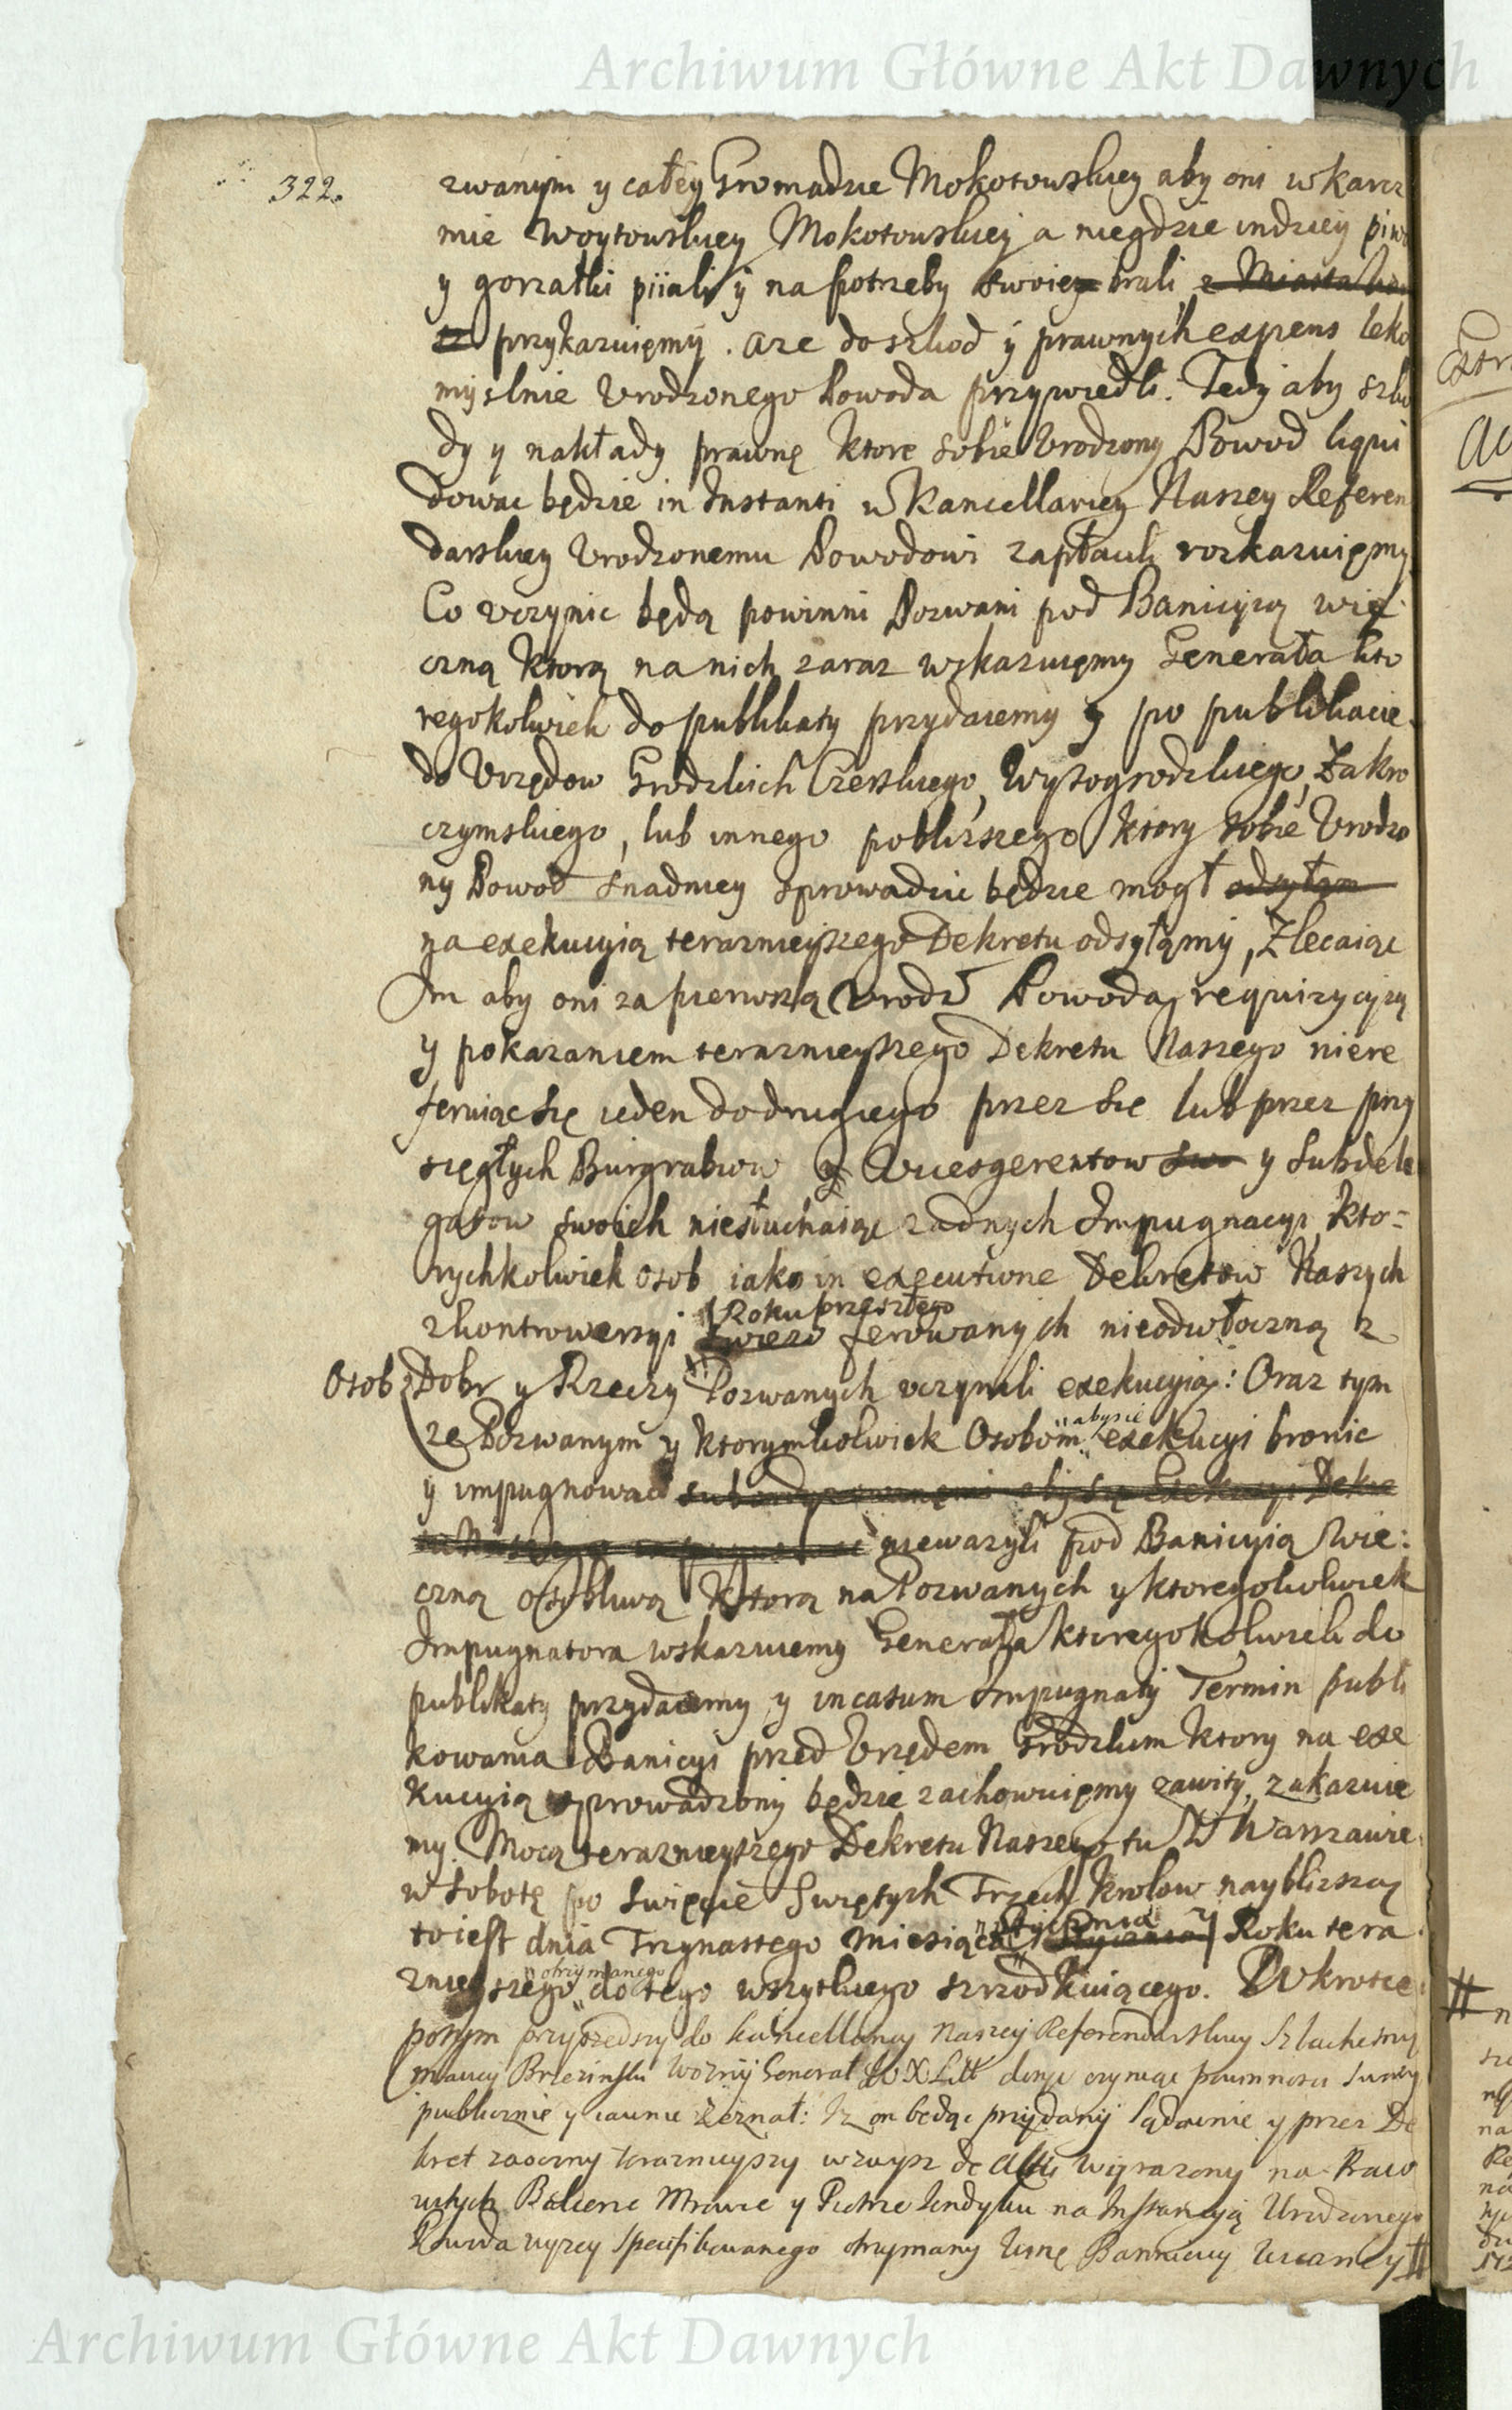 Archiwum Główne Akt Dawnych
322.
zwanym y całey Gromadzie Mokotowskiey aby oni w karcz
mie Woytowskiey Mokotowskiey a niegdzie indziey piwo
y gorzałki piiali y na potrzeby swoie brali z Miasta
przykazuięmy. aze do szkod y prawnych expens leko
myslnie Vrodzonego Powoda przywiedli. Tedy aby szko
dy y nakłady prawnę ktore sobie Vrodzony Powod liqui
dowac będzie in Instanti w Kancellaryey Naszey Referen
darskiey Vrodzonemu Powodowi zapłacili rozkazuięmy
Co vczynic będą powinni Pozwani pod Banicyią wie
czną ktorą na nich zaraz wskazuięmy Generała kto
regokolwiek do publikaty przydaiemy y po publikacie
do Vrzędow Grodzkich Czerskiego, Wyszogrodzkiego, Zakro
czymskiego, lub innego poblizszego ktory sobie Vrodzo
ny Powod snadniey sprowadzic będzie mogł odsyłam
na exekucyią teraznieyszego Dekretu odsyłamy, Zlecaiąc
Im aby oni za pierwszą Vrodz Powoda requizycyią
y pokazaniem teraznieyszego Dekretu Naszego niere
feruiąc się ieden do drugiego przez się lub przez przy
sięgłych Burgrabiow y Vicesgerentow swo y Subdele
gatow swoich niesłuchaiąc zadnych Impugnacyi kto=
rychkolwiek osob iako in executione Dekretow Naszych
z kontrowersyi Roku przeszłego swiezo ferowanych nieodwłoczną z
Osob Dobr y Rzeczy Pozwanych vczynili exekucyią: Oraz tym
ze Pozwanym y ktorymkolwiek Osobom aby sie exekucyi bronic
y impugnowac
niewazyli pod Banicyią wie:
czną osobliwą ktorą na Pozwanych y ktoregokolwiek
Impugnatora wskazuiemy Generała ktoregokolwiek do
publikaty przydaiemy y in casum Impugnaty Termin publi
kowania Banicyi przed Vrzędem Grodzkim ktory na exe
kucyią sprowadzony będzie zachowuięmy zawity, zakazuie
my. Mocą teraznieyszego Dekretu Naszego tu W Warszawie
w Sobotę po Swięcie Swiętych Trzech Krolow naybliszszą
to iest dnia Trzynastego Miesiąca Stycznia Stycznia Roku tera
znieyszego otrzymanego do tego wszytkiego szrzodkuiącego. Wkrotce
potym przyszedszy do kancellaryi Naszey Referendarskiey Szlachetny
Maciey Brzezinski Wozny Generał czyniąc powinnosci swoiey
publicznie y iawnie zeznał: Iz on będąc przydany Sądownie y przez De
kret zaoczny teraznieyszy wzwysz de Actu wyrazony na Praco
witych Balcerze Mrowie y Piotrze Indyku na Instancyią Urodzonego
Powoda wyzey specifikowanego otrzymany winę Banniciey wieczney #
Archiwum Główne Akt Dawnych